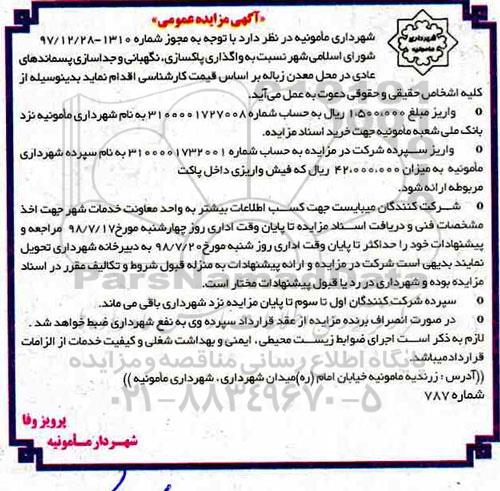 «آگهی مزایده عمومی»
شهرداری مامونیه
شهرداری مأمونیه در نظر دارد با توجه به مجوز شماره ۱۳۱۰-۹۷/۱۲/۲۸
شورای اسلامی شهر نسبت به واگذاری پاکسازی، نگهبانی و جداسازی پسماندهای
عادی در محل معدن زباله بر اساس قیمت کارشناسی اقدام نماید بدینوسیله از
کلیه اشخاص حقیقی و حقوقی دعوت به عمل می‌آید.
o واریز مبلغ ۱،۵۰۰،۰۰۰ ریال به حساب شماره ۳۱۰۰۰۰۱۷۲۷۰۰۸ به نام شهرداری مأمونیه نزد
بانک ملی شعبه مامونیه جهت خرید اسناد مزایده.
o واریز سپرده شرکت در مزایده به حساب شماره ۳۱۰۰۰۰۱۷۳۲۰۰۱ به نام سپرده شهرداری
مأمونیه به میزان ۴۲،۰۰۰،۰۰۰ ریال که فیش واریزی داخل پاکت
مربوطه ارائه شود.
o شرکت کنندگان میبایست جهت کسب اطلاعات بیشتر به واحد معاونت خدمات شهر جهت اخذ
مشخصات فنی و دریافت اسناد مزایده تا پایان وقت اداری روز چهارشنبه مورخ ۹۸/۷/۱۷ مراجعه و
پیشنهادات خود را حداکثر تا پایان وقت اداری روز شنبه مورخ ۹۸/۷/۲۰ به دبیرخانه شهرداری تحویل
نمایند بدیهی است شرکت در مزایده و ارائه پیشنهادات به منزله قبول شروط و تکالیف مقرر در اسناد
مزایده بوده و شهرداری در رد یا قبول پیشنهادات مختار است.
o سپرده شرکت کنندگان اول تا سوم تا پایان مزایده نزد شهرداری باقی می ماند.
o در صورت انصراف برنده مزایده از عقد قرارداد سپرده وی به نفع شهرداری ضبط خواهد شد.
لازم به ذکر است اجرای ضوابط زیست محیطی، ایمنی و بهداشت شغلی و کیفیت خدمات از الزامات
قرارداد میباشد.
((آدرس: زرندیه مامونیه خیابان امام (ره) میدان شهرداری، شهرداری مأمونیه))
شماره ۷۸۷
پرویز وفا
شهردار مامونیه
ParsNamadData
پایگاه اطلاع رسانی مناقصه و مزایده
۰۲۱-۸۸۳۴۹۶۷۰-۵